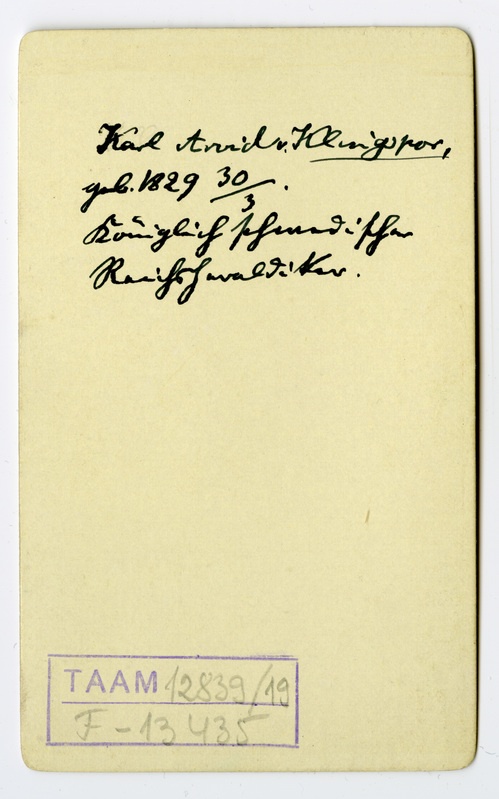 Karl Arvid v. Klingspor,
geb. 1829 30/3.
Königlich schwedischer
Reichsheraldiker.
TAAM 12839/19
F-13435